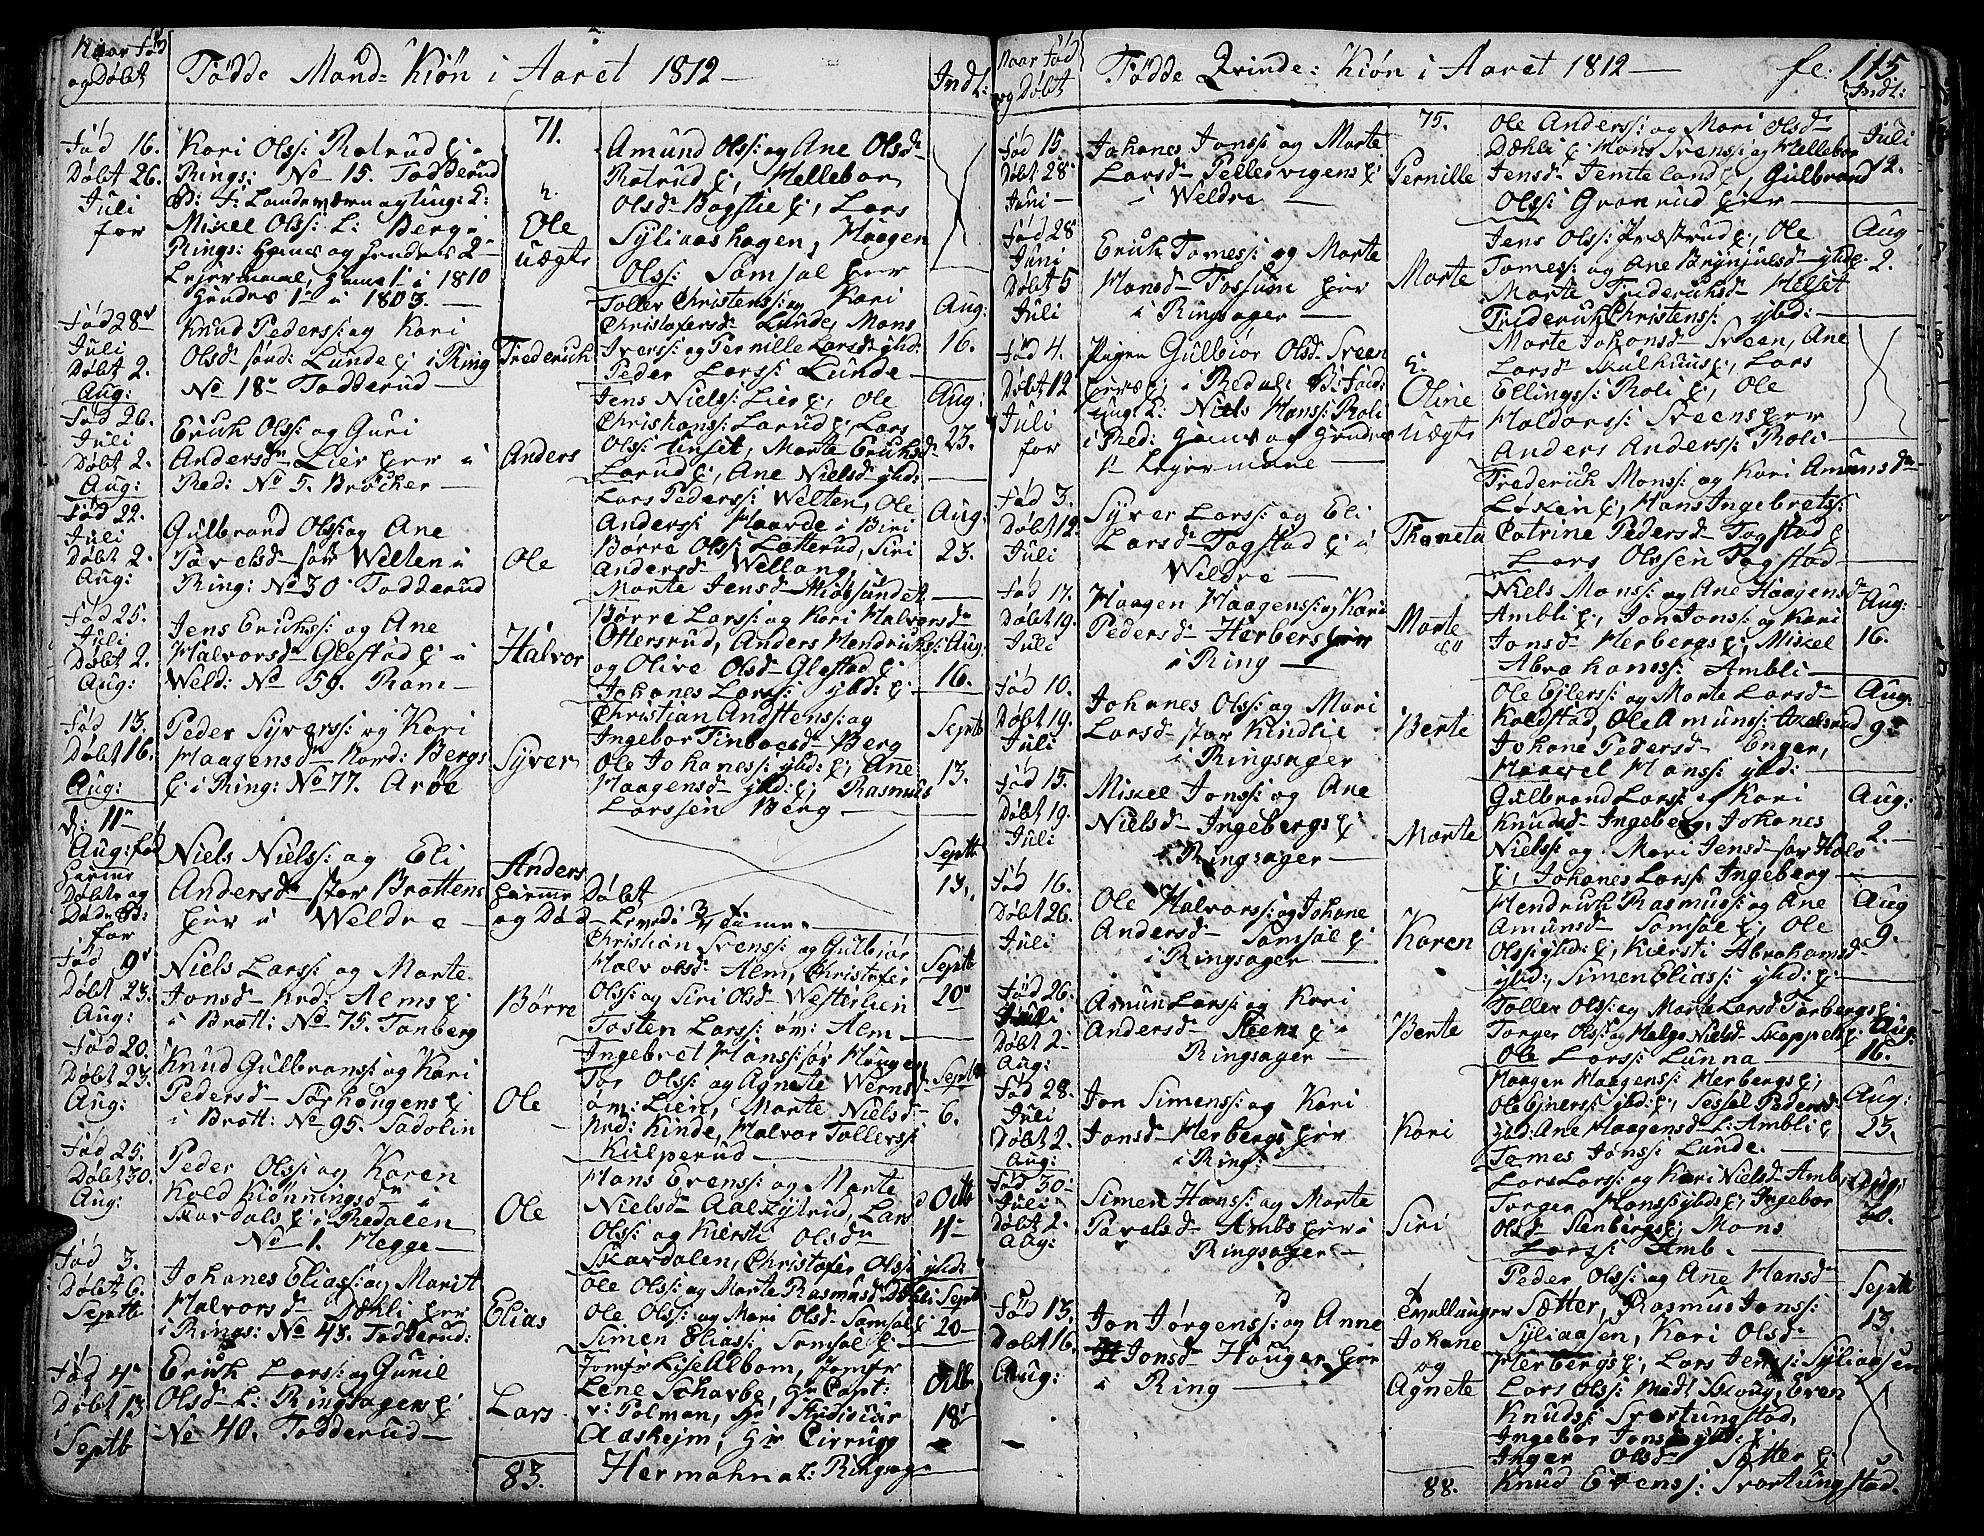 Naar Fød
og Døbt
Fødde Mand-Kiøn i Aaret 1812 —
Indl:
Fød 16.
Døbt 26.
Juli
for
Kari Olss: Rotrud
Rings: No 15. Todderud
Mikel Olss: L: Berg i
Rings: Hans og Hendes 2-
Lejermaal, Hans 1- i 1810
Hendes 1- i 1803. —
71.
Ole
uægte
Amund Olss: og Ane Olsd-
Rotrud Ej, Hellebor
Olsd- Bogstie Ej, Lars
Syliaashagen, Haagen
Olss: Samsal
Fød 28-
Juli
Døbt 2.
Aug:
Knud Peders: og Kari
Olsd- Lunde Ej i Ring
No 18- Todderud —
Frederich
Toller Christens: og Kari
Christofersd- Lunde, Mons
Iverss: og Pernille Larsd- ybd:
Peder Larss: Lunde —
Aug:
16.
Fød 26.
Juli
Døbt 2.
Aug:
Erich Olss: og Guri
Andersd- Lier
Red: No 5. Bröcher —
Anders
Jens Nielss: Lier Ej, Ole
Christians: Larud Ej, Lars
Olss: Tinset, Marte Erichsd-
Larud Ej, Ane Nielsd- ybd:
Aug:
23.
Fød 22.
Juli
Døbt 2.
Aug:
Gulbrand Olss: og Ane
Pavelsd- Welten i
Ring: No 30 Todderud
Ole
Lars Pederss: Welten, Ole
Anderss: Haarde i Biri
Børre Olss: Lotterud, Siri
Andersd- Wellang,
Marte Jensd- Miøsundet
Aug:
23.
Fød 25.
Juli
Døbt 2.
Aug:
Jens Erichss: og Ane
Halvorsd- Glestad Ej i
Weld: No 59. Ram —
Halvor
Børre Larss: og Kari Halvorsd-
Ottersrud, Anders Hendrichs:
og Olive Olsd- Glestad Ej
Johanes Larss: ybd: Ej
Aug:
16.
Fød 13.
Døbt 16.
Aug:
Peder Syverss: og Kari
Haagensd- Nord: Bergs
Ej i Ring: No 77. Arøe
Syver
Christian Andstenss: og
Ingebor Berg
Ole Johaness: ybd: Ej, Ane
Haagensd- ybd: Ej, Rasmus
Larssen Berg —
Septb
13.
d: 11-
Aug: fød
hieme
Døbt og
Død
for
Niels Nielss: og Eli
Andersd- stor Brottens
i Weldre —
Anders
hieme Døbt
og Død —
Septb
13.
Fød 9-
Døbt 23.
Aug:
Niels Larss: og Marte
Jonsd- Nrd: Alms Ej
i Brott: No 75. Tanberg
Børre
Christian Svenss: og Gulbiør
Halvorsd- Alm, Christofer
Olss: og Siri Olsd- Westerlien
Tosten Larss: Alm —
Septb
20-
Fød 20.
Døbt 23.
Aug:
Knud Gulbrans: og Kari
Pedersd- Ej
i Brott: No 95. Tadolin
Ole
Ingebret Hanss:
Tor Olss: og Agnete
Lien, Marte Nielsd-
Nrd: Kinde, Halvor Tollerss:
Kulperud —
Septb
6.
Fød 25.
Døbt 30.
Aug:
Peder Olss: og Karen
Kold Kiønningsd- i
Skardals Ej i Redalen
No 1. Hegge —
Ole
Hans Evenss: og Marte
Nielsd- Lars
Olss: og Kiersti Olsd-
Skardalen, Christofer Olss: ybd:
Octb
4-
Fød 3.
Døbt 6.
Septb
Johanes Eliass: og Marit
Halvorsd- Dæhli
i Rings: No 43. Todderud:
Elias
Ole Olss: og Marte Rasmusd- Dæhli
Ole Olss: og Mari Olsd- Samsal Ej
Simen Eliass: Samsal Ej
Septb
20-
Fød 4-
Døbt 13
Septb
Erich Larss: og Gunil
Olsd- L: Ringsagers Ej
No 40. Todderud —
Lars
Jomfr Lise Albom, Jomfr
Lene Scharbe, Hr Capt:
v: Polman, Hr Studiosus
Aasheim, Hr Cirrurg
Hermahn at Ringsag-
Octb
18-
83.
Naar Fød
og Døbt
Fødde Qvinde: Kiøn i Aaret 1812 —
fe: 115
Indl:
Fød 15.
Døbt 28
Juni —
Johanes Jonss: og Marte
Larsd- Pellervigens Ej
i Weldre —
75.
Pernille
Ole Anderss: og Mari Olsd-
Dæhli Ej Mons Svenss: og Hellebor
Jensd- Jemteland Ej, Gulbrand
Olss: Granrud
Juli
12.
Fød 28
Juni
Døbt 5
Juli
Erich Tomess: og Marte
Hansd- Fossum
i Ringsager —
Marte
Jens Olss: Præstrud Ej, Ole
Tomess: og Ane Brynjulsd- ybd:
Marte Friderichsd- Helset
Friderich Christenss: ybd: —
Aug
2.
Fød 4.
Døbt 12
Juli
for
Pigen Gulbiør Olsd- Sveen
i Redal:
ung L: Niels Hanss: Roli
i Red: Hans og Hendes
1- Lejermaal —
Oline
Uægte
Marte Johansd- Sveen, Ane
Larsd- Skulhuus Ej, Lars
Ellingss: Roli, Ole
Haldorss: Sveens
Anders Anderss: Roli —
Fød 3.
Døbt 12.
Juli
Syver Larss: og Eli
Larsd- Fogstad Ej i
Weldre —
Thoneta
Frederich Monss: og Kari Amunsd-
Løken Ej, Hans Ingebretss:
Catrine Pedersd- Fogstad Ej
Lars Olssen Fogstad —
Fød 17.
Døbt 19.
Juli
Haagen Haagenss: og Kari
Pedersd- Herbergs
i Ring —
Marte
Niels Monss: og Ane Haagensd-
Ambli Ej, Jon Jonss: og Kari
Jonsd- Herbergs Ej, Mikel
Abrahamss: Ambli —
Aug:
16.
Fød 10.
Døbt 19.
Juli
Johanes Olss: og Mari
Larsd- stor Kindlie
i Ringsager
Berte
Ole Ejlerss: og Marte Larsd-
Koldstad, Ole Amunss:
Johane Pedersd- Enger,
Hanss: ybd: —
Aug:
9-
Fød 15.
Døbt 19.
Juli
Mikel Jonss: og Ane
Nielsd- Ingebergs Ej
i Ringsager —
Marte
Gulbrand Larss: og Kari
Knudsd- Ingeberg, Johanes
Nielss: og Mari Jensd-
Ej, Johanes Larss: Ingeberg —
Aug:
2.
Fød 16.
Døbt 26.
Juli
Ole Halvorss: og Johane
Andersd- Samsal Ej
i Ringsager —
Karen
Hendrich Rasmuss: og Ane
Amunsd- Samsal Ej, Ole
Olss: ybd: Ej, Kiersti Abrahamsd-
ybd:, Simen Eliass: ybd: Ej
Aug
9.
Fød 26.
Juli
Døbt 2-
Aug:
Amun Larss: og Kari
Andersd- Steens Ej i
Ringsager —
Berte
Toller Olss: og Marte Larsd- Farbergs Ej
Torger Olss: og Helge Nielsd- Skappels Ej
Ole Larss: Lunna —
Aug:
16.
Fød 28.
Juli
Døbt 2.
Aug:
Jon Simenss: og Kari
Jonsd- Herbergs
i Ring: —
Kari
Haagen Haagenss: Herbergs Ej,
Ole Ejnerss: ybd: Ej, Sessel Pedersd-
ybd: Ane Haagensd- L: Ambli Ej
Tomes Jonss: Lunde. —
Aug:
23.
Fød 30.
Juli
Døbt 2.
Aug:
Simen Hanss: og Marte
Pavelsd- Ambs i
Ringsager —
Siri
Lars Larss: og Kari Nielsd- Amb,
Torger Hanss: ybds Ej, Ingebor
Olsd- Stenbergs Ej, Mons
Larss: Amb. —
Aug:
30.
Fød 13.
Døbt 16.
Aug:
Jon Jørgenss: og Anne
Jonsd- Houger
i Ring —
Tvillinger
Johane
og
Agnete
Peder Olss: og Ane Hansd-
Sætter, Rasmus Jonss:
Syliaasen, Kari Olsd-
Herbergs Ej, Lars Jenss: Syliaasen
Lars Olss: Midt Skoug, Even
Knudss: Svartungstad,
Ingebor Jonsd- ybd: Ej
Inger Olsd- Sætter Ej
Knud Evenss: Svartungstad.
Septb
13.
88.